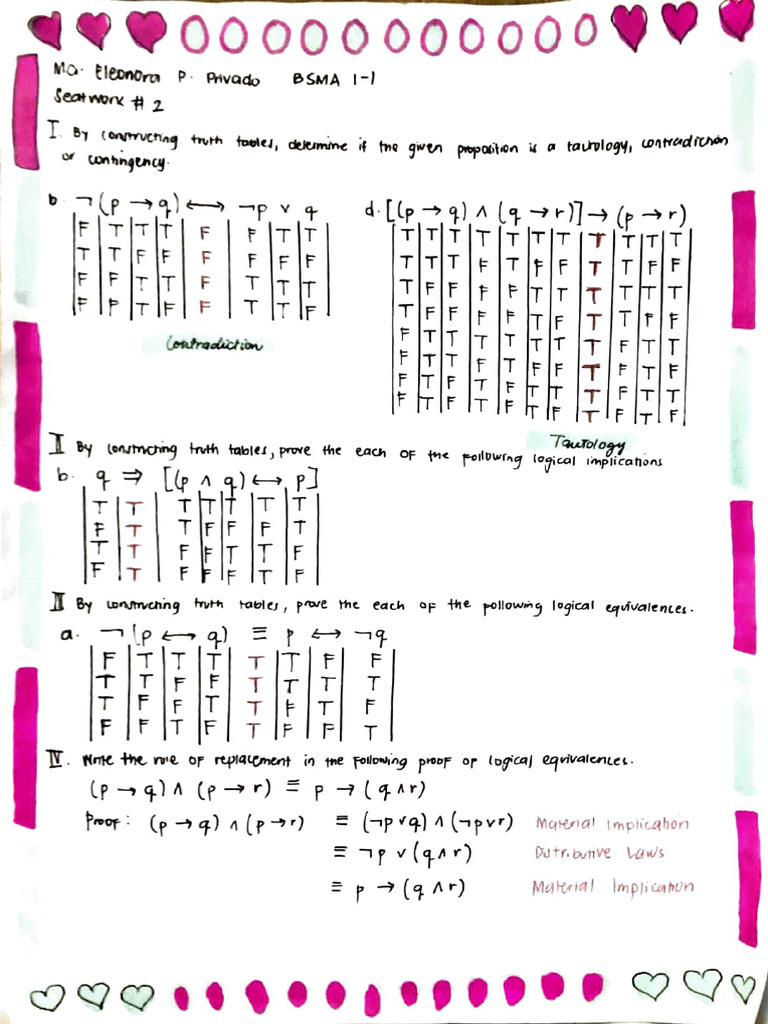 Ma. Eleonora P. Privado BSMA 1-1
Seatwork # 2
I. By constructing truth tables, determine if the given proposition is a tautology, contradiction
or contingency.
b. ¬ (p → q) ↔ ¬p ∨ q d. [(p → q) ∧ (q → r)] → (p → r)
F T T T F F T T T T T T T T T T T T T
T T F F F F F F T T T F T F F T T F F
F F T T F T T T T F F F F T T T T T T
F F T F F T T F T F F F F T F T T F F
F T T T T T T T F T T
Contradiction F T T F T F F T F T F
F T F T F T T T F T T
F T F T F T F T F T F
Tautology
II By constructing truth tables, prove the each of the following logical implications
b. q ⇒ [(p ∧ q) ↔ p]
T T T T T T T
F T T F F F T
T T F F T T F
F T F F F T F
III By constructing truth tables, prove the each of the following logical equivalences.
a. ¬ (p ↔ q) ≡ p ↔ ¬q
F T T T T T F F
T T F F T T T T
T F F T T F T F
F F T F T F F T
IV. Write the rule of replacement in the following proof of logical equivalences.
(p → q) ∧ (p → r) ≡ p → (q ∧ r)
Proof: (p → q) ∧ (p → r) ≡ (¬p ∨ q) ∧ (¬p ∨ r) Material Implication
≡ ¬p ∨ (q ∧ r) Distributive Laws
≡ p → (q ∧ r) Material Implication